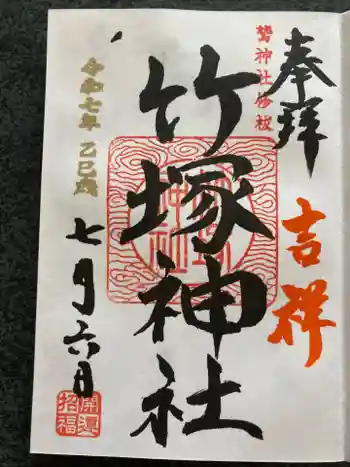 奉拝
吉祥
鷲神社修祓
竹塚神社
令和七年 乙巳歳
七月六日
開運
招福